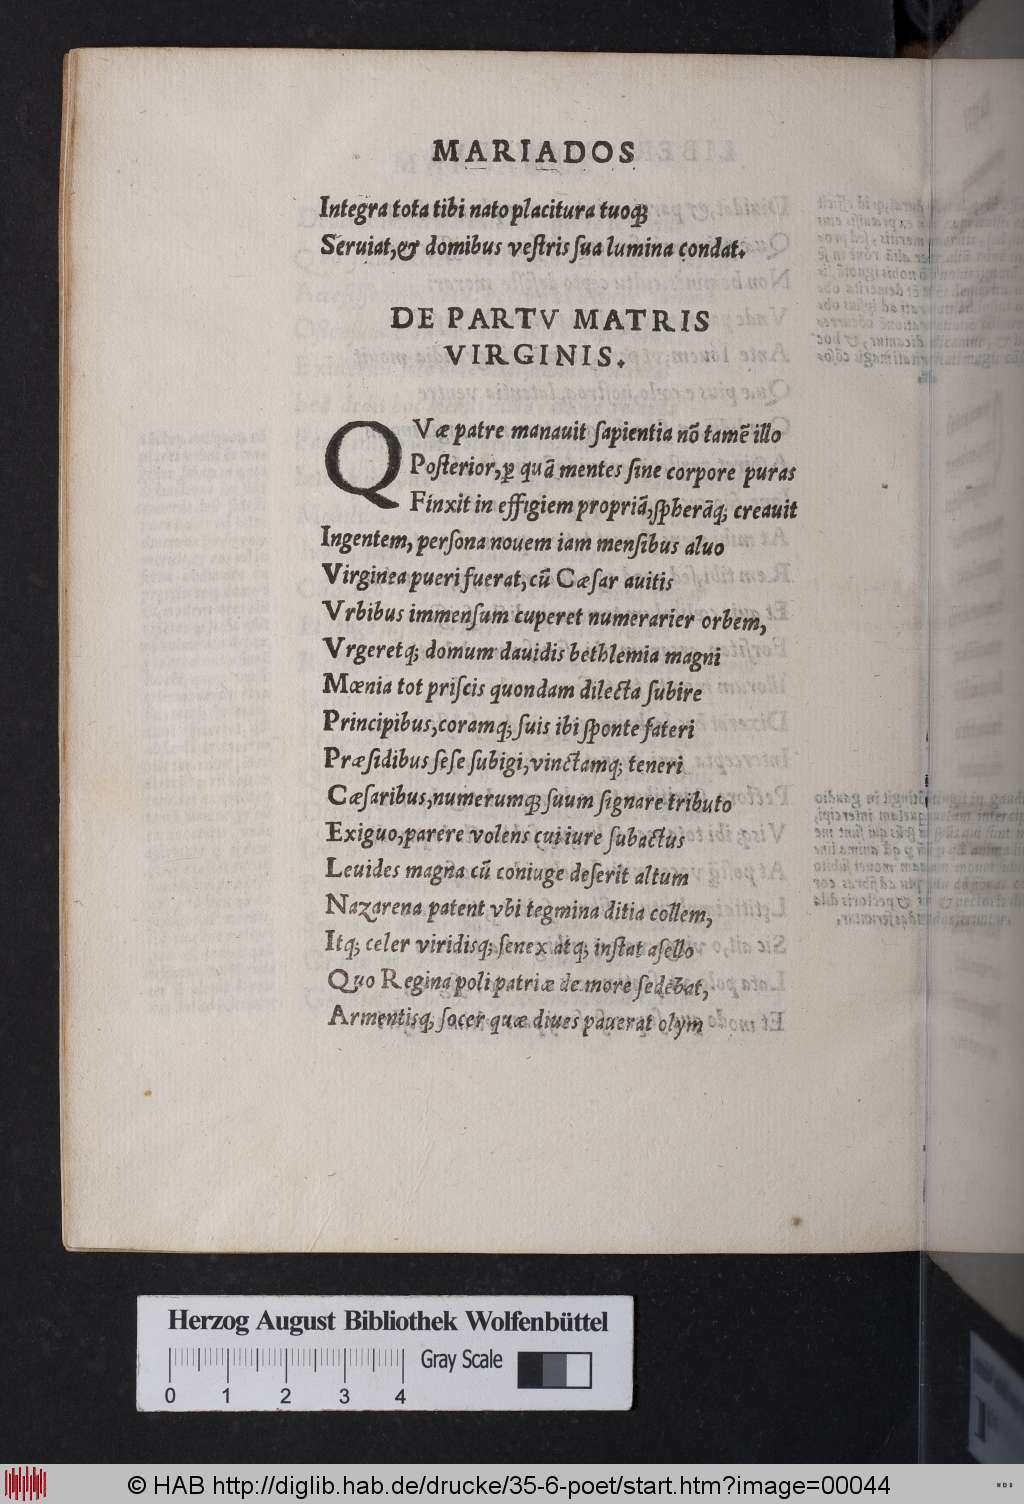 MARIADOS
Integra tota tibi nato placitura tuoq;
Seruiat, & domibus veſtris ſua lumina condat.
DE PARTV MATRIS
VIRGINIS.
QVæ patre manauit ſapientia nõ tamẽ illo
Poſterior, ꝑ quã mentes ſine corpore puras
Finxit in effigiem propriã, ſpherãq; creauit
Ingentem, perſona nouem iam menſibus aluo
Virginea pueri fuerat, cũ Cæſar auitis
Vrbibus immenſum cuperet numerarier orbem,
Vrgeretq; domum dauidis bethlemia magni
Mœnia tot priſcis quondam dilecta ſubire
Principibus, coramq; ſuis ibi ſponte fateri
Præſidibus ſeſe ſubigi, vinctamq; teneri
Cæſaribus, numerumq; ſuum ſignare tributo
Exiguo, parere volens cui iure ſubactus
Leuides magna cũ coniuge deſerit altum
Nazarena patent vbi tegmina ditia collem,
Itq; celer viridisq; ſenex atq; inſtat aſello
Quo Regina poli patriæ de more ſedebat,
Armentisq; ſocer quæ diues pauerat olym
Herzog August Bibliothek Wolfenbüttel
Gray Scale
0 1 2 3 4
© HAB http://diglib.hab.de/drucke/35-6-poet/start.htm?image=00044